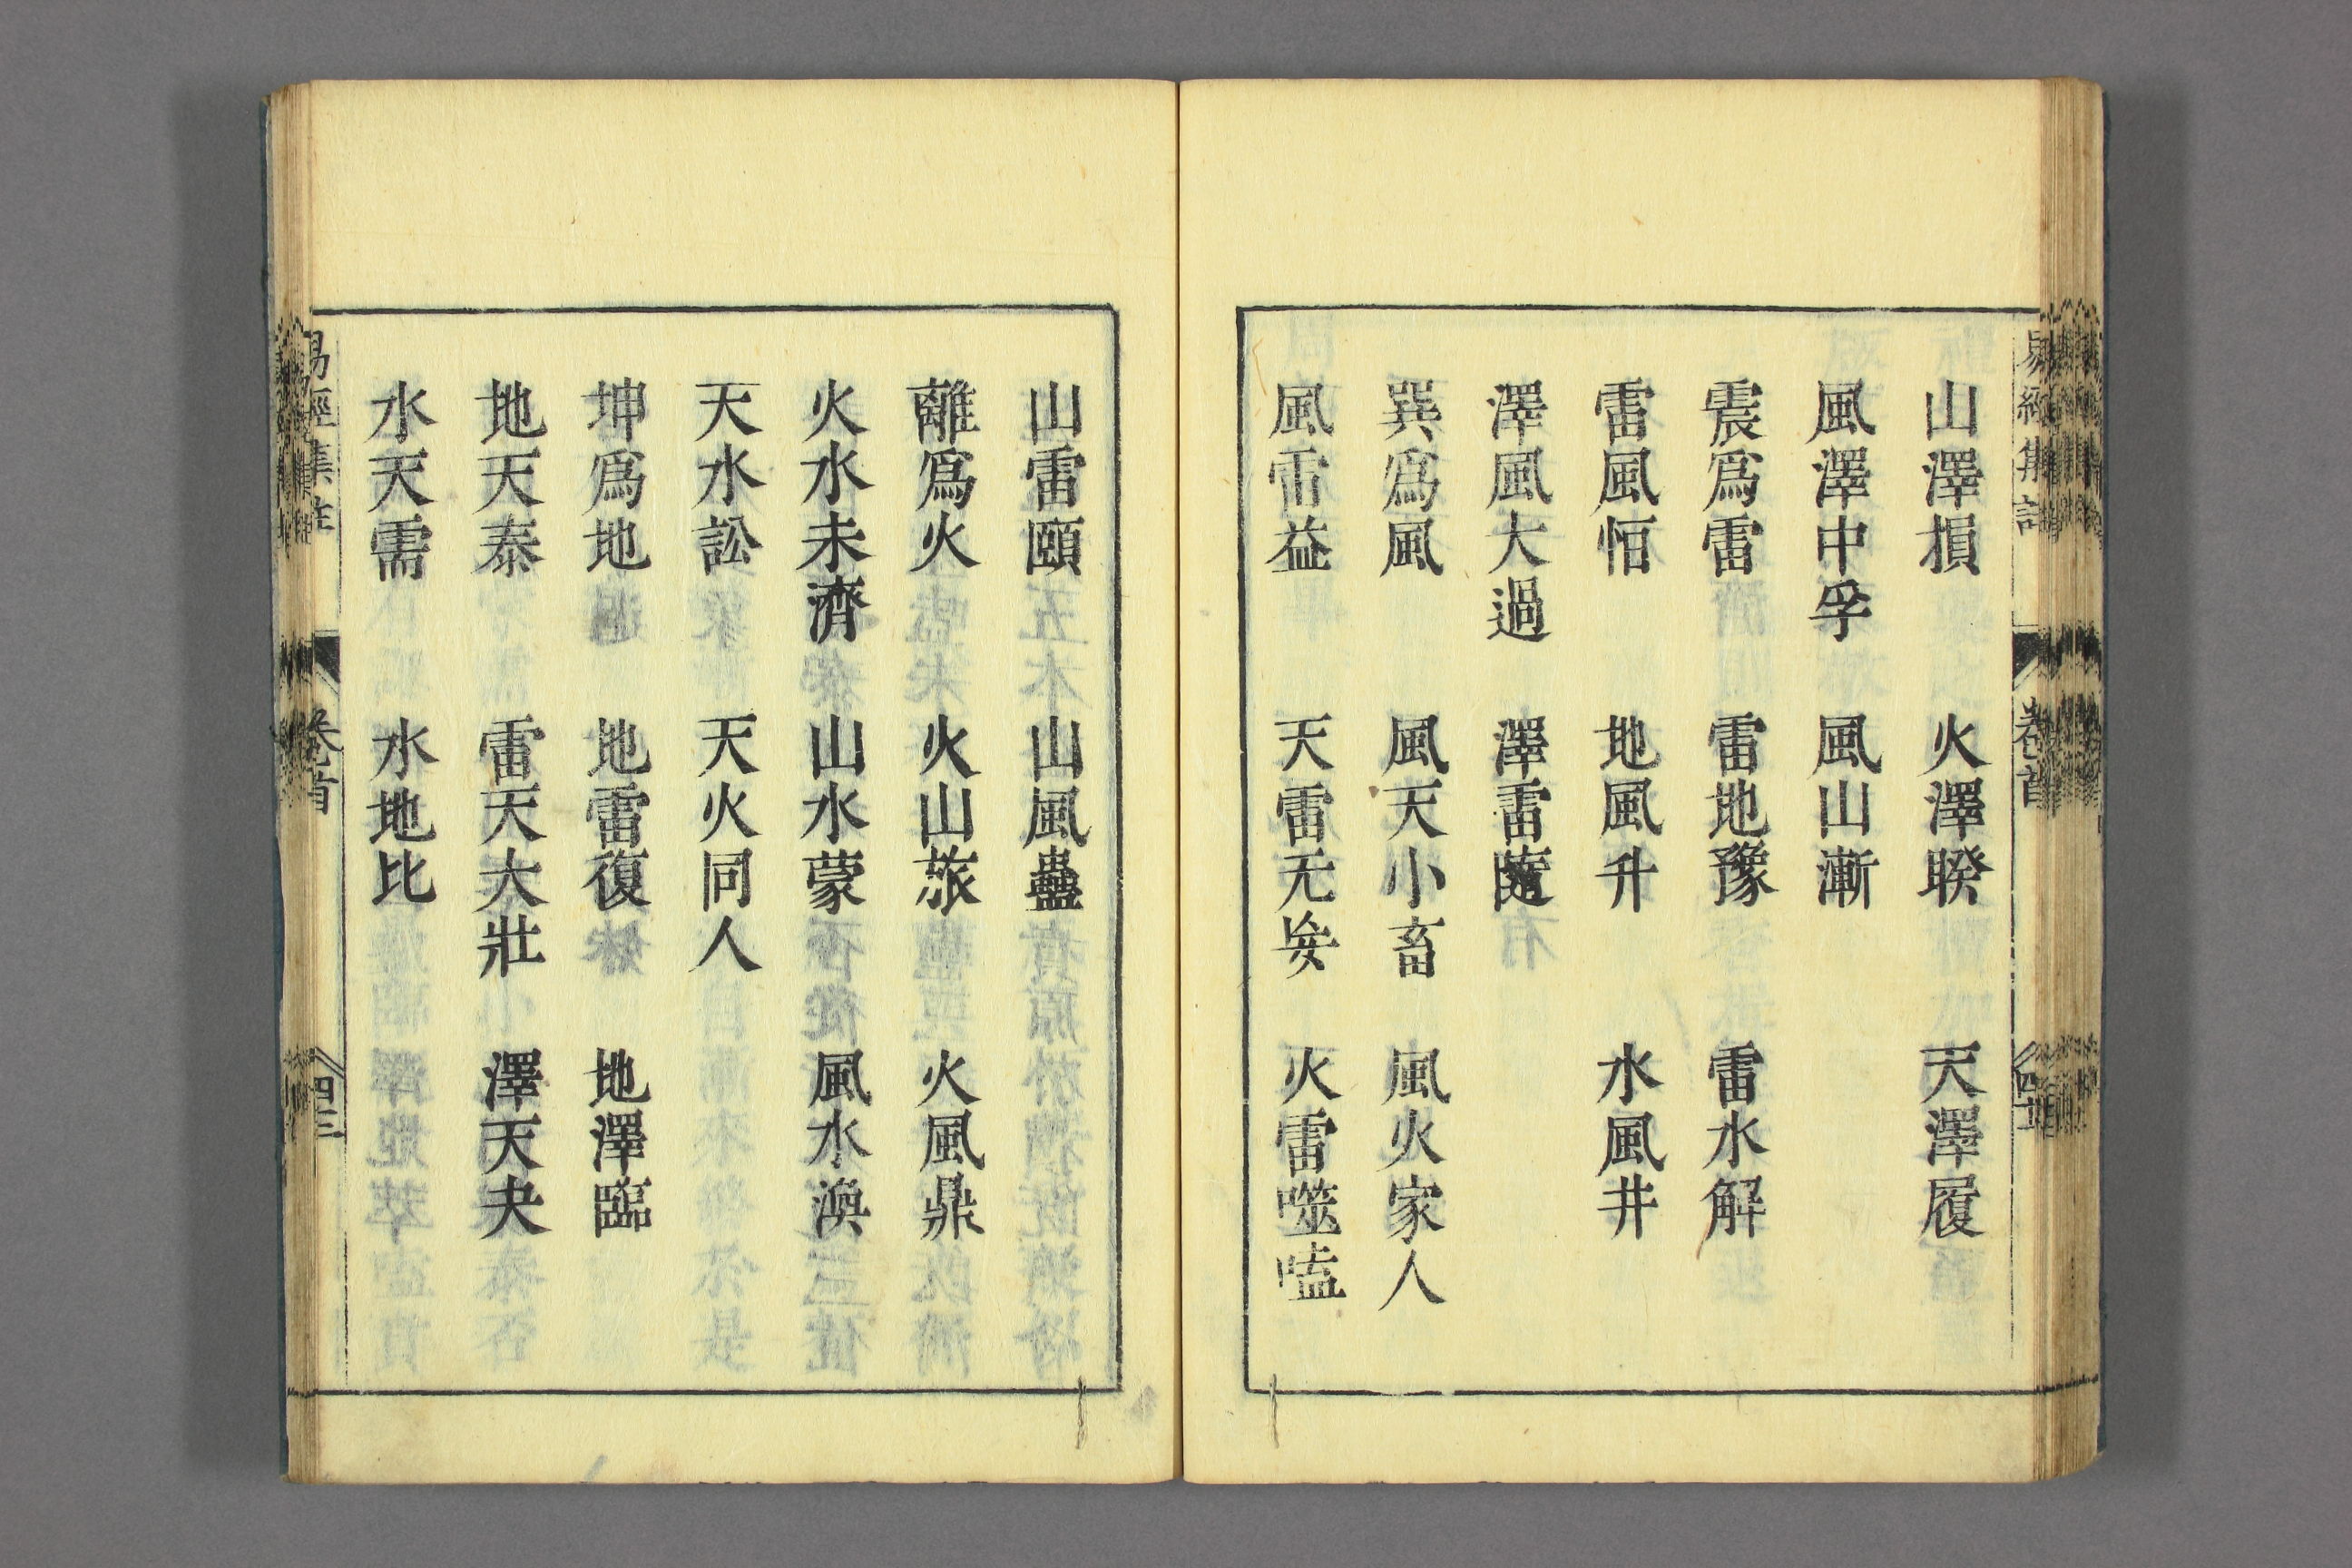 山澤損　火澤睽　天澤履
風澤中孚　風山漸
震爲雷　雷地豫　雷水解
雷風恒　地風升　水風井
澤風大過　澤雷隨
巽爲風　風天小畜　風火家人
風雷益　天雷无妄　火雷噬嗑
山雷頤　山風蠱
離爲火　火山旅　火風鼎
火水未濟　山水蒙　風水渙
天水訟　天火同人
坤爲地　地雷復　地澤臨
地天泰　雷天大壯　澤天夬
水天需　水地比
易經集註　卷首　四三